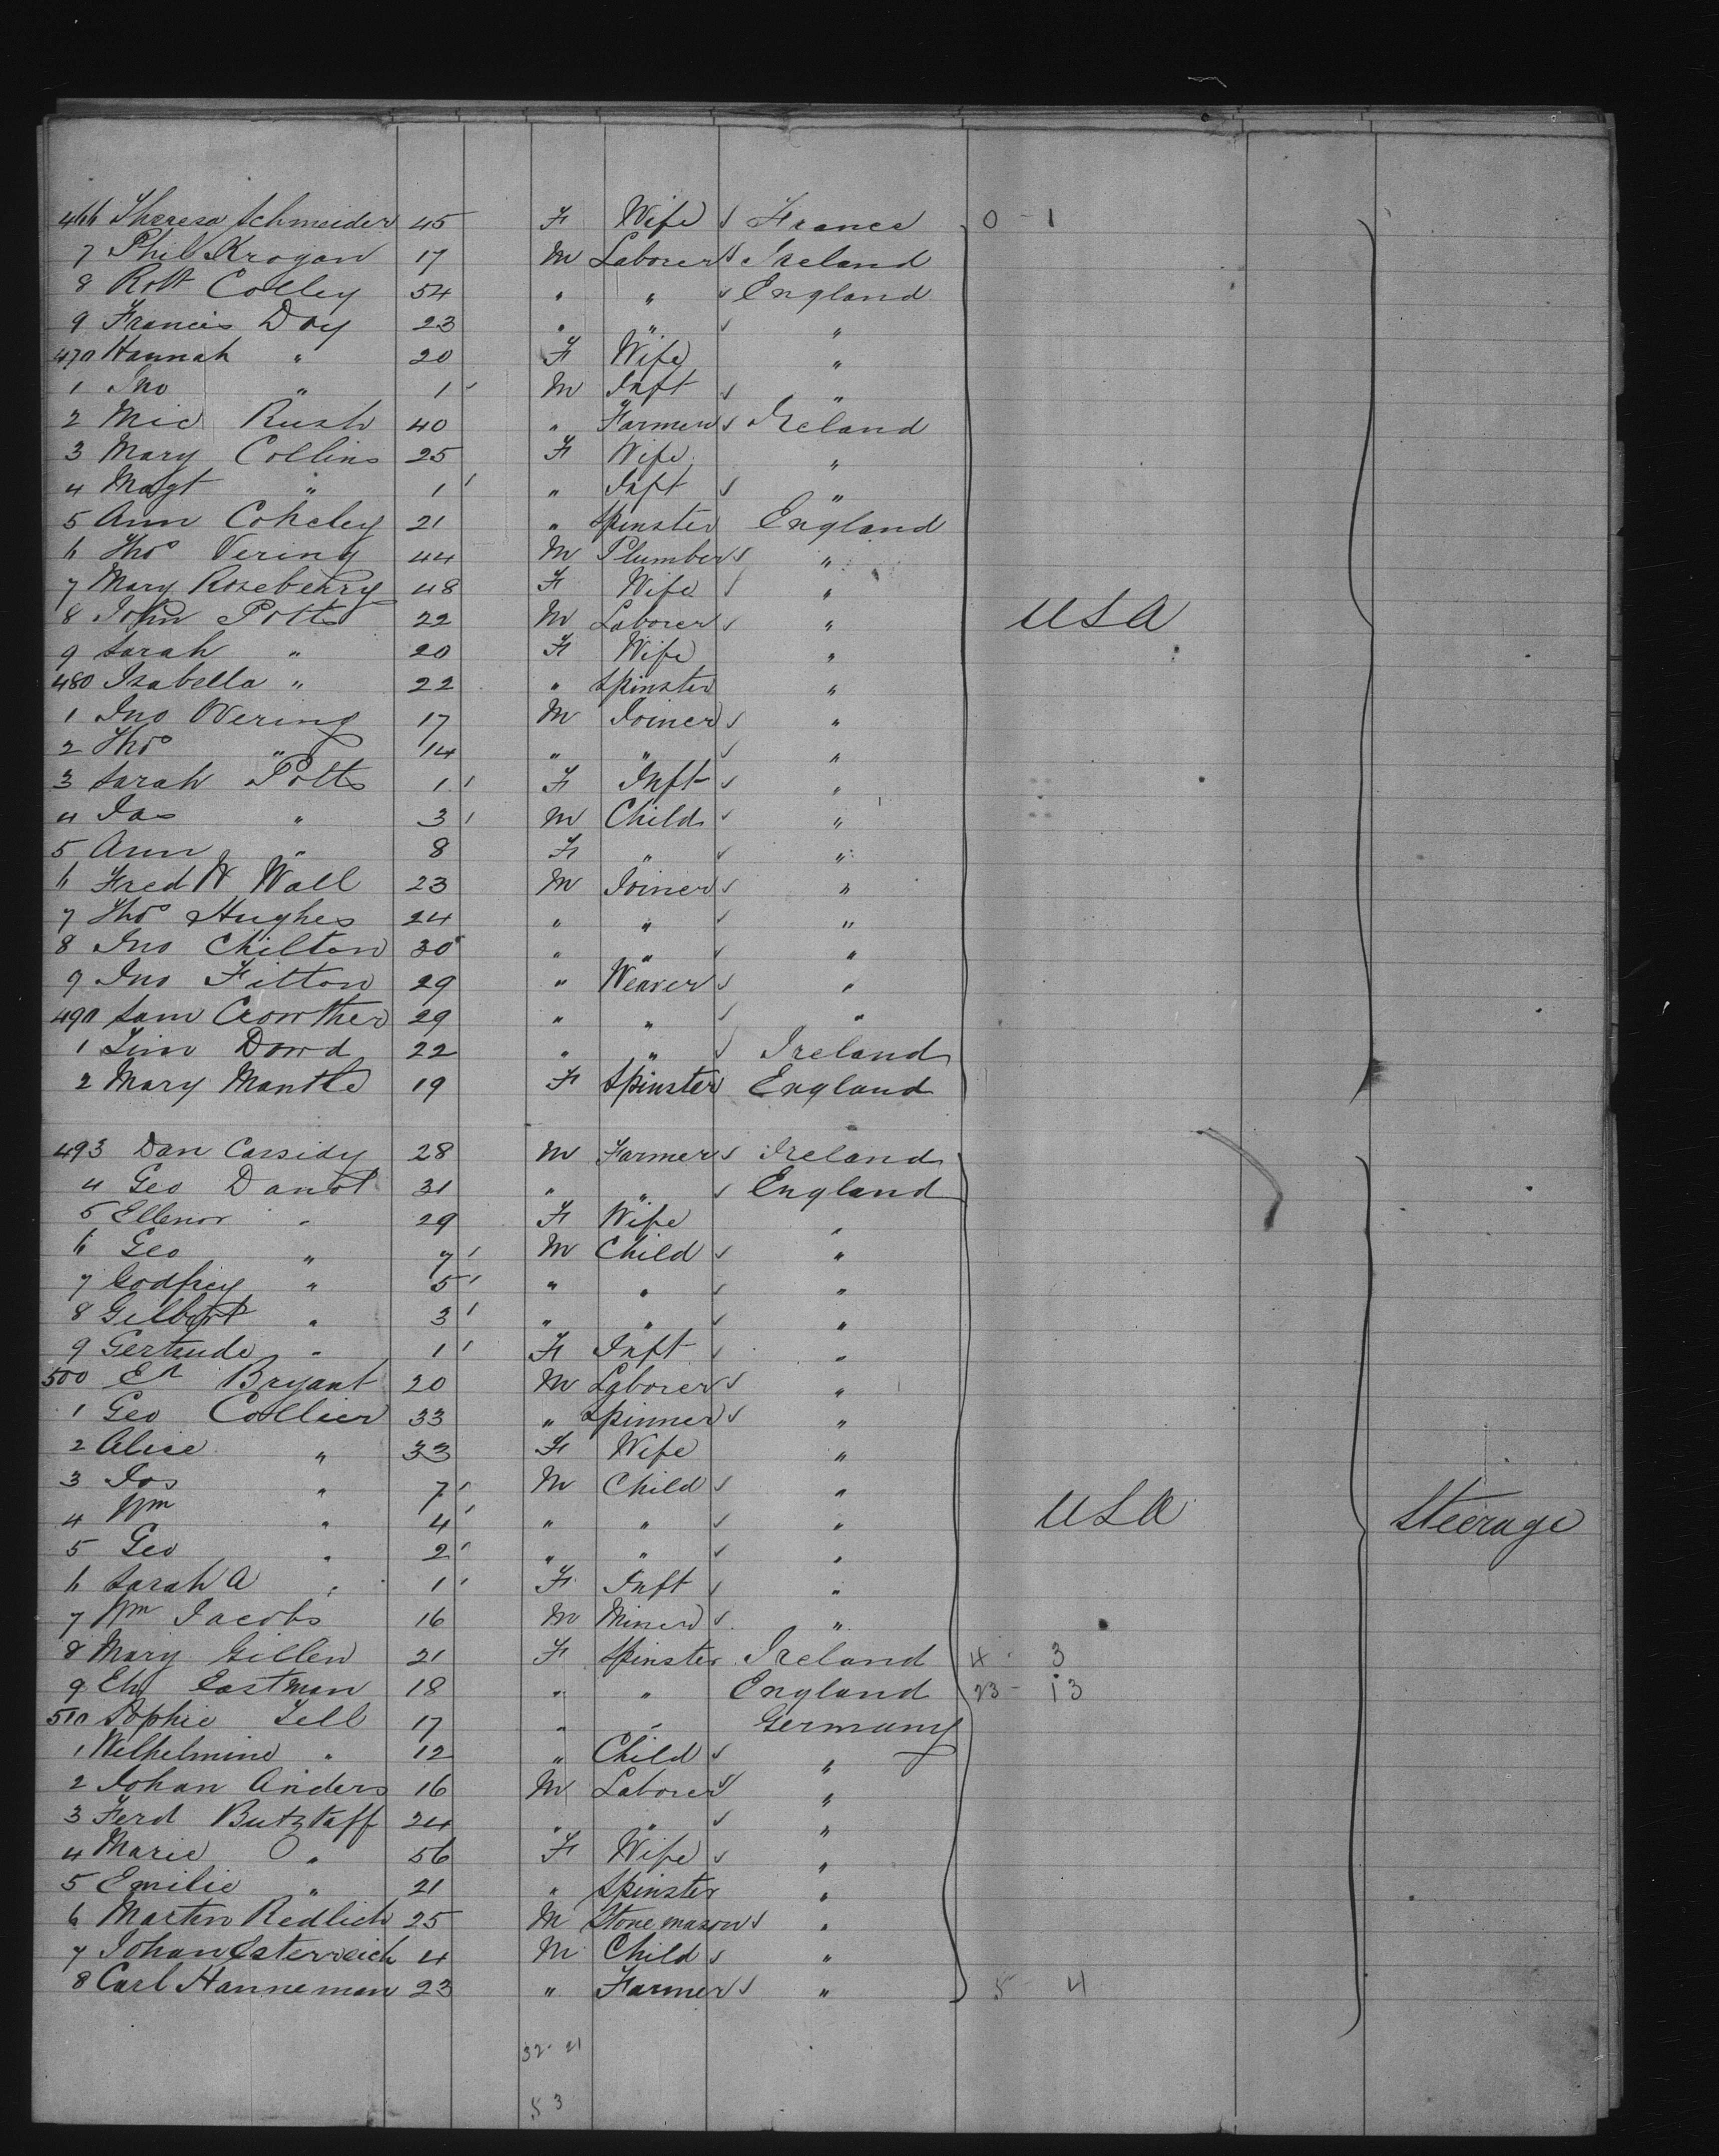 466 Theresa Schneider 45 F Wife France 0 - 1
7 Phil Krogan 17 M Laborer Ireland
8 Robt Colley 54 " " England
9 Francis Day 23 " " "
470 Hannah " 20 F Wife "
1 Jno " 1 M Inft "
2 Mic Rush 40 " Farmer Ireland
3 Mary Collins 25 F Wife "
4 Magt " 1 " Inft "
5 Ann Cokeley 21 " Spinster England
6 Thos Vering 44 M Plumber "
7 Mary Roseberry 48 F Wife "
8 John Potts 22 M Laborer " USA
9 Sarah " 20 F Wife "
480 Isabella " 22 " Spinster "
1 Jno Wering 17 M Joiner "
2 Thos " 14 " " "
3 Sarah Potts 1 F Inft "
4 Jas " 3 M Child "
5 Ann " 8 F " "
6 Fred W Wall 23 M Joiner "
7 Thos Hughes 24 " " "
8 Jno Chilton 30 " " "
9 Jno Fitton 29 " Weaver "
490 Sam Crowther 29 " " "
1 Tim Dowd 22 " " Ireland
2 Mary Mantle 19 F Spinster England
493 Dan Cassidy 28 M Farmer Ireland
4 Geo Danot 31 " " England
5 Ellenor " 29 F Wife "
6 Geo " 7 M Child "
7 Godfrey " 5 " " "
8 Gilbert " 3 " " "
9 Gertrude " 1 F Inft "
500 Bryant 20 M Laborer "
1 Geo Collier 33 " Spinner "
2 Alice " 33 F Wife "
3 Jos " 7 M Child "
4 Wm " 4 " " " USA Steerage
5 Geo " 2 " " "
6 Sarah A " 1 F Inft "
7 Wm Jacobs 16 M Miner "
8 Mary Gillen 21 F Spinster Ireland 4 - 3
9 Eastman 18 " " England 23 - 13
510 Sophie Tell 17 " " Germany
1 Wilhelmine " 12 " Child "
2 Johan Anders 16 M Laborer "
3 Ferd Butzlaff 24 " " "
4 Marie " 56 F Wife "
5 Emilie " 21 " Spinster "
6 Martin Redlich 25 M Stone mason "
7 Johan Esterreich 4 M Child "
8 Carl Hanneman 23 " Farmer " 5 - 4
32 - 21
53